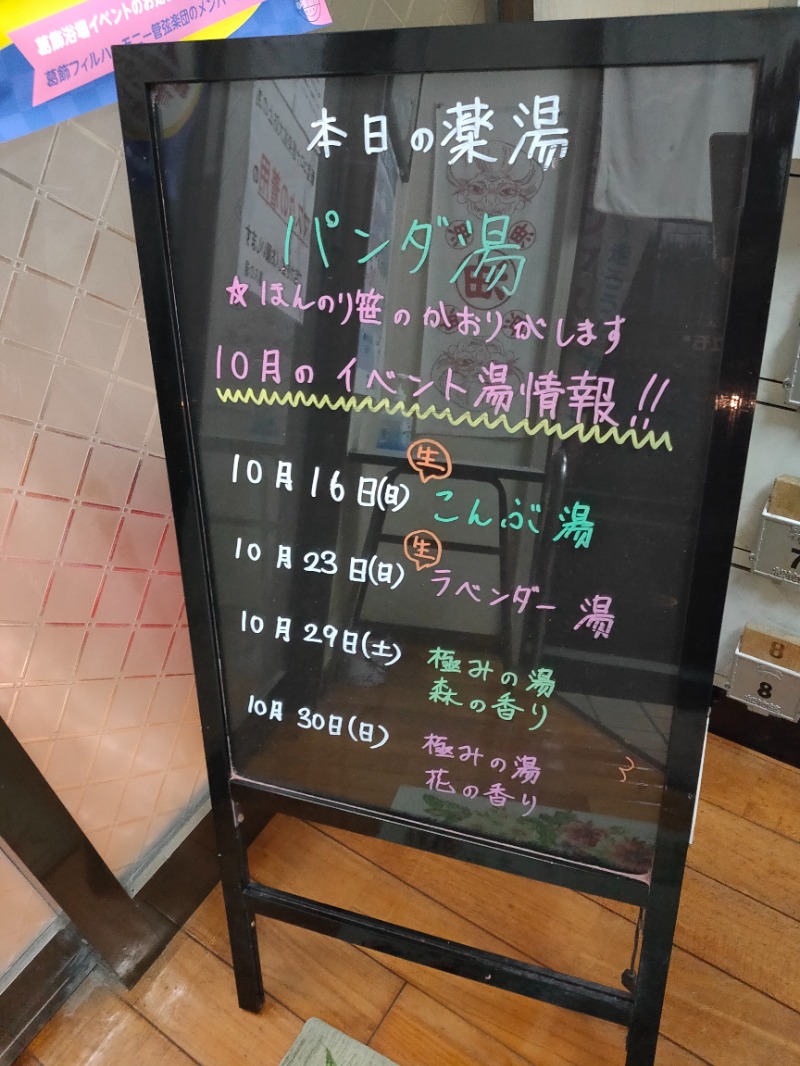 葛飾浴場イベントのお
葛飾フィルハーモニー管弦楽団のメンバー
本日の薬湯
パンダ湯
☆ほんのり笹のかおりがします
10月のイベント湯情報!!
10月16日(日) 生 こんぶ湯
10月23日(日) 生 ラベンダー湯
10月29日(土) 極みの湯
森の香り
10月30日(日) 極みの湯
花の香り
7
8
8